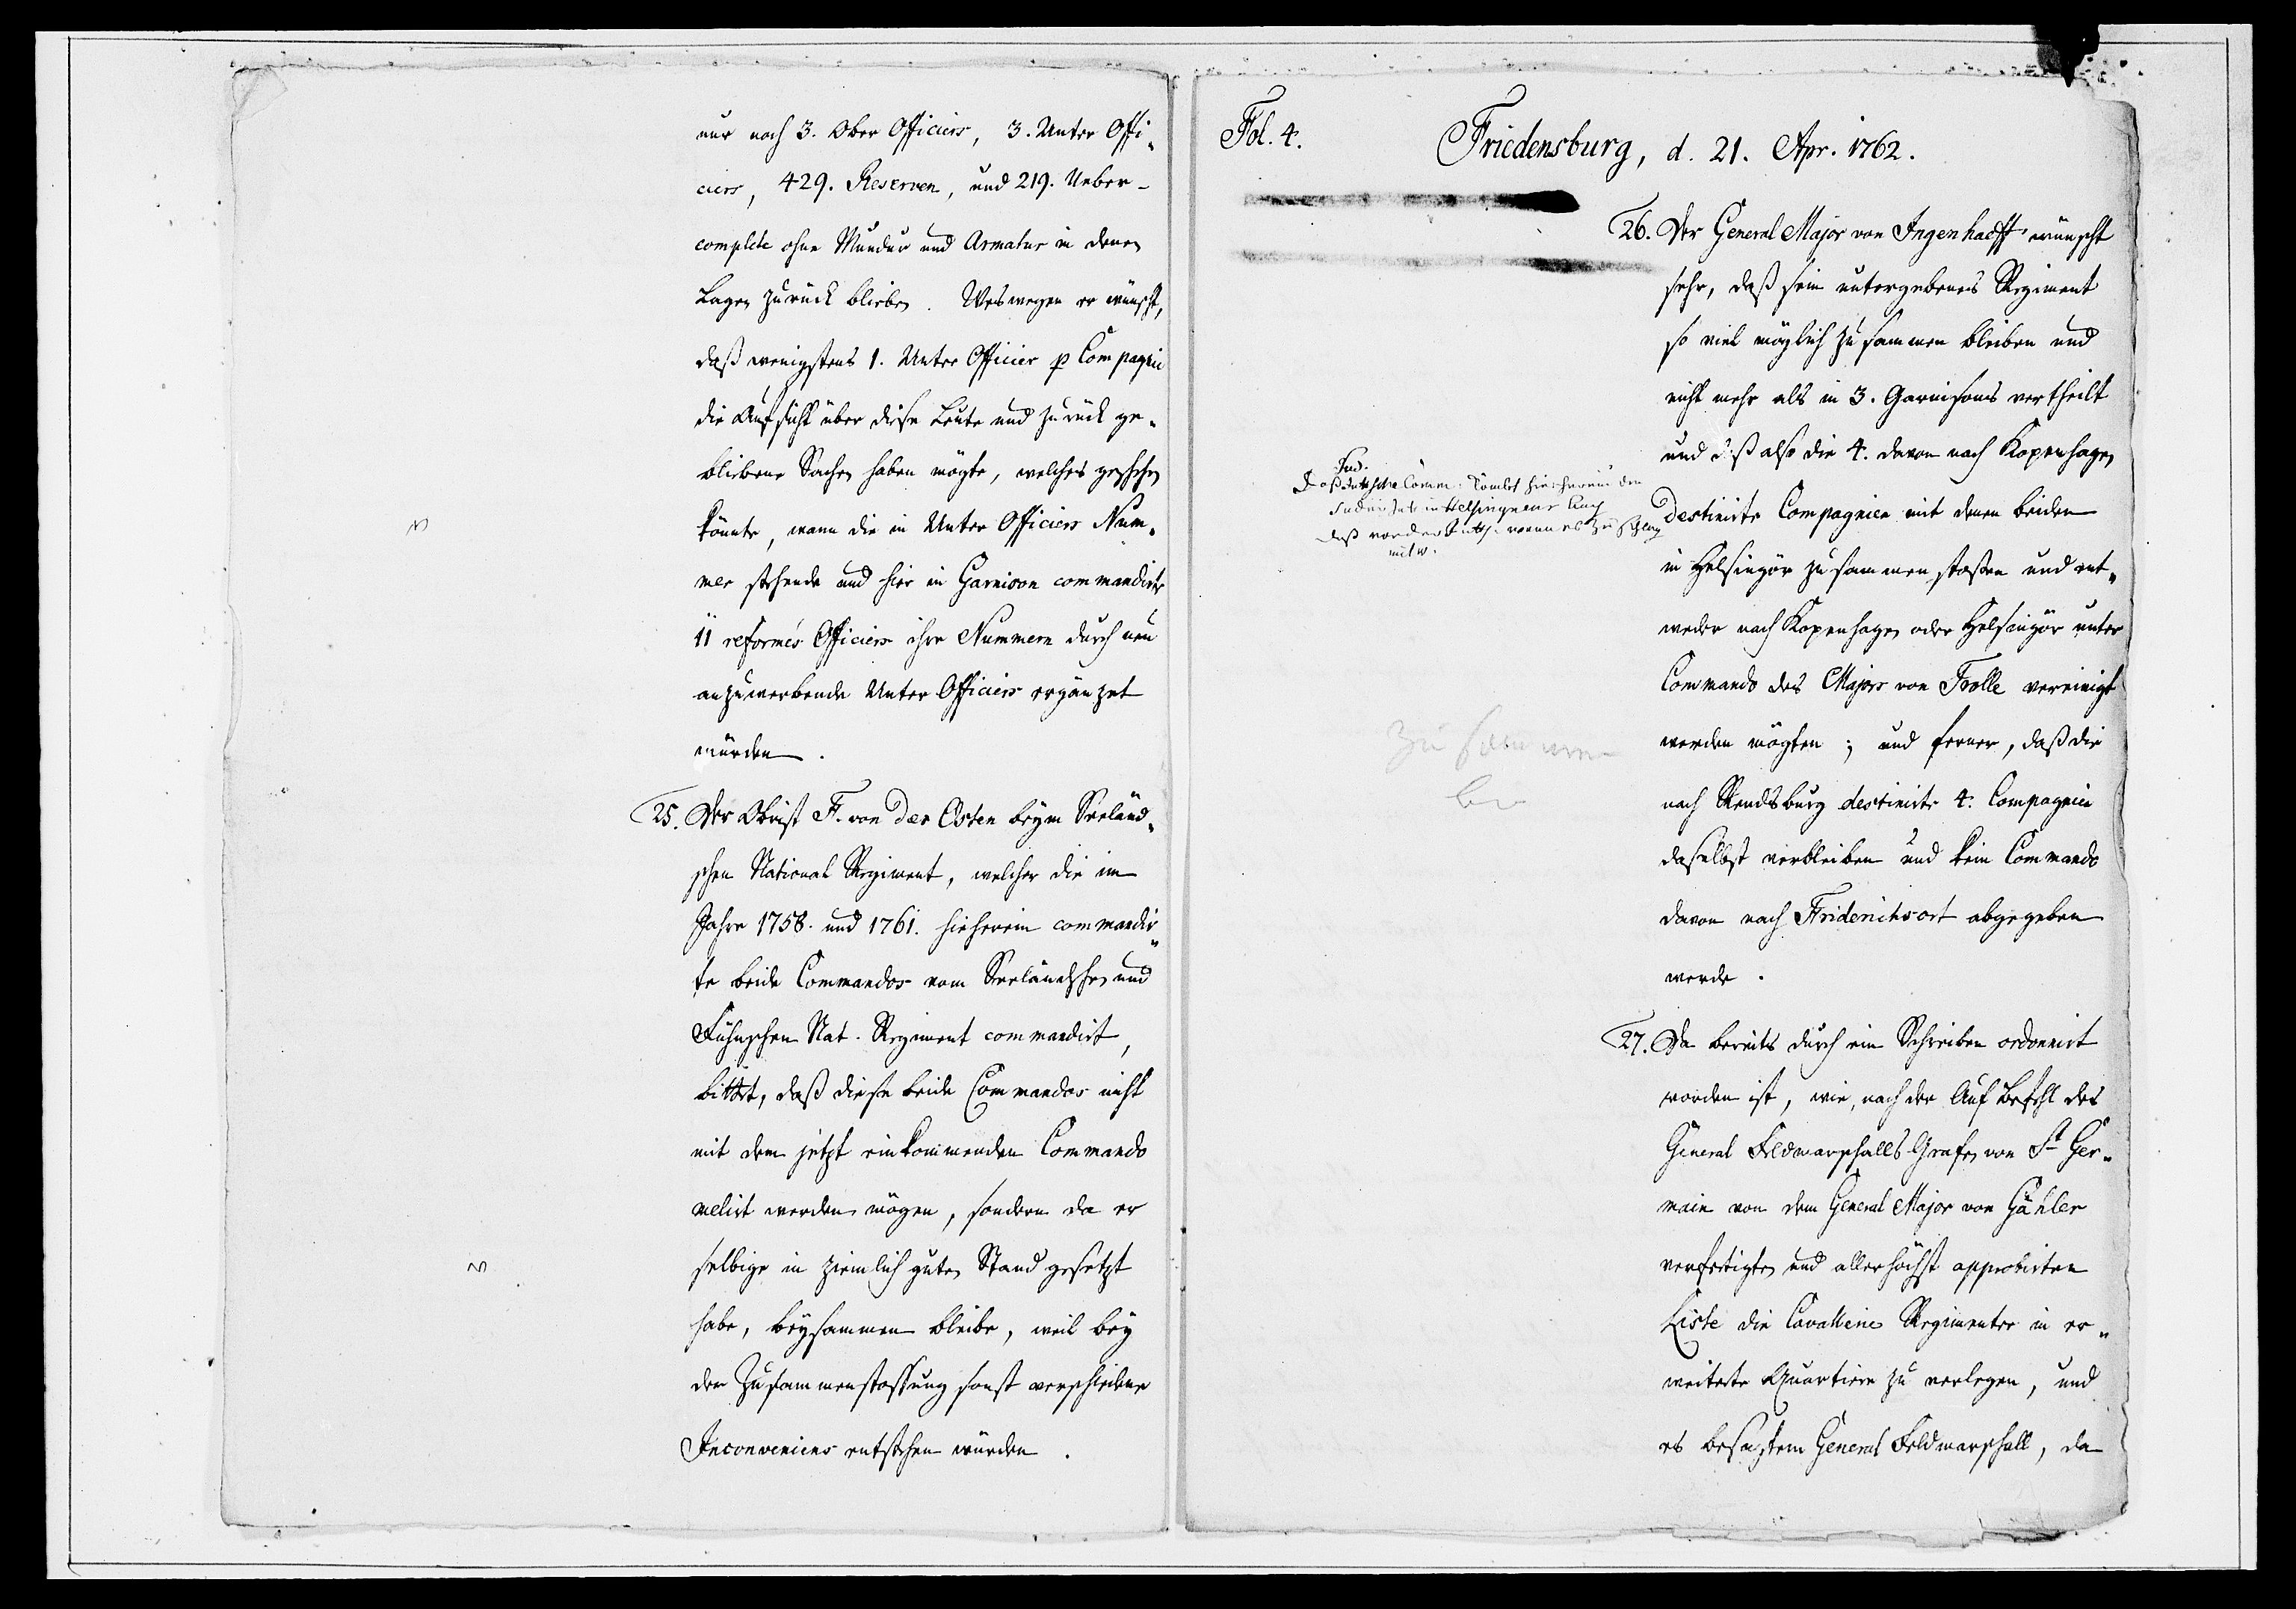 nur noch 3. Ober Officiers, 3. Unter Offi-
ciers, 429. Reserven, und 219. Ueber-
complete ohne Mundur und Armatur in denen
Lagen zurück bleiben. Weswegen er wünscht,
daß wenigstens 1. Unter Officier p Compagnie
die Aufsicht über diese Leute und zurück ge-
bliebene Sachen haben mögte, welches geschehen
könnte, wann die in Unter Officiers Num-
mer stehende und hier in Garnison commandirte
11 reformés Officiers ihre Nummern durch neu
anzuwerbende Unter Officiers ergänzet
würden.
25. Der Obrist F. von der Osten beym Seeländ-
schen National Regiment, welcher die im
Jahre 1758. und 1761. hieherein commandir-
te beide Commandos vom Seeländschen und
Fühnschen Nat. Regiment commandirt,
bittet, daß diese beide Commandos nicht
mit dem jetzt einkommenden Commando
melirt werden mögen, sondern da er
selbige in ziemlich guten Stand gesetzt
habe, beysammen bleibe, weil bey
der Zusammenstossung sonst verschiedene
Inconveniens entstehen würden.
Fol. 4.
Friedensburg, d. 21. Apr. 1762.
26. Der General Major von Ingenhaeff wünscht
sehr, daß sein untergebenes Regiment
so viel möglich zusammen bleiben und
nicht mehr als in 3. Garnisons vertheilt
und daß also die 4. davon nach Kopenhagen
destinirte Compagnien mit denen beiden
in Helsingör zusammen stoßen und ent-
weder nach Kopenhagen oder Helsingör unter
Commando des Majors von Trolle vereinigt
werden mögten; und ferner, daß die
nach Rendsburg destinirte 4. Compagnien
daselbst verbleiben und kein Commando
davon nach Friderichsort abgegeben
werde.
zusammen
27. Da bereits durch ein Schreiben ordonnirt
worden ist, wie, nach der Auf Befehl des
General Feldmarschalls Grafen von St Ger-
main von dem General Major von Gähler
verfertigten und allerhöchst approbirten
Liste die Cavallerie Regimenter in er-
weiterte Quartiere zu verlegen, und
es besagtem General Feldmarschall, da